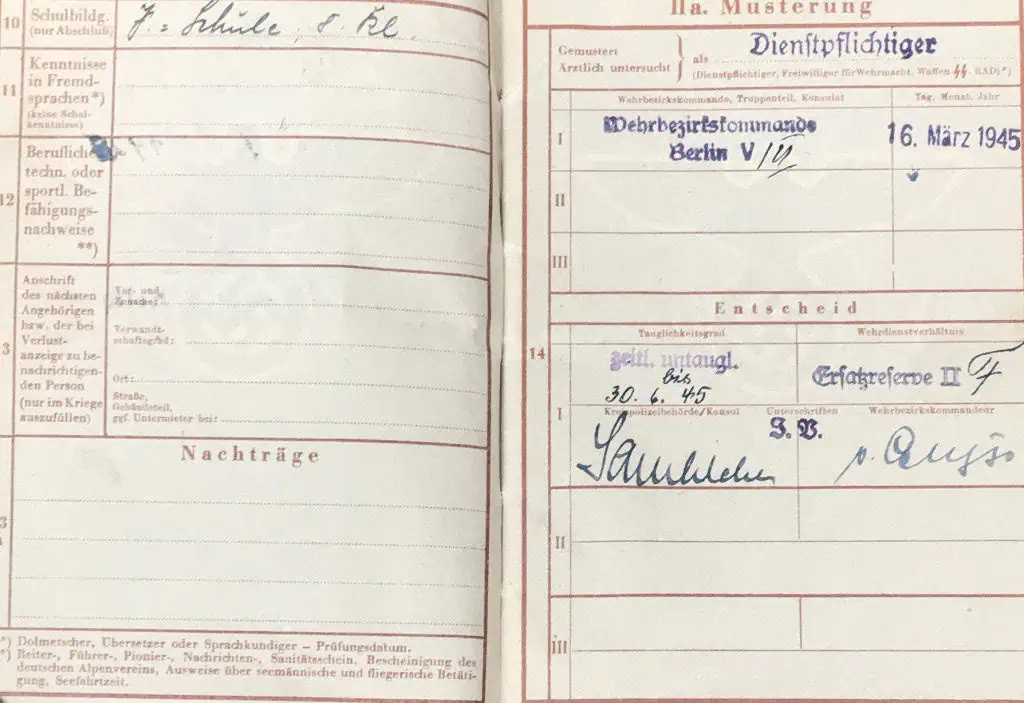 10 Schulbildg.
(nur Abschluß)
Schule, 8. Kl.
11 Kenntnisse
in Fremd-
sprachen*)
(keine Schul-
kenntnisse)
12 Berufliche
techn. oder
sportl. Be-
fähigungs-
nachweise
**)
3 Anschrift
des nächsten
Angehörigen
bzw. der bei
Verlust-
anzeige zu be-
nachrichtigen-
den Person
(nur im Kriege
auszufüllen)
Vor- und
Zuname:
Verwandt-
schaftsgrad:
Ort:
Straße,
Gebäudeteil,
ggf. Untermieter bei:
Nachträge
3
*) Dolmetscher, Übersetzer oder Sprachkundiger – Prüfungsdatum.
*) Reiter-, Führer-, Pionier-, Nachrichten-, Sanitätsschein, Bescheinigung des
deutschen Alpenvereins, Ausweise über seemännische und fliegerische Betäti-
gung, Seefahrtzeit.
IIa. Musterung
Gemustert
Ärztlich untersucht
als Dienstpflichtiger
(Dienstpflichtiger, Freiwilliger für Wehrmacht, Waffen-SS, RAD)*)
Wehrbezirkskommando, Truppenteil, Konsulat Tag, Monat, Jahr
I Wehrbezirkskommando 16. März 1945
Berlin V/II
II
III
Entscheid
14 Tauglichkeitsgrad Wehrdienstverhältnis
zeitl. untaugl. Ersatzreserve II F
bis
30. 6. 45
I Kreispolizeibehörde/Konsul Unterschriften Wehrbezirkskommandeur
I. V.
II
III